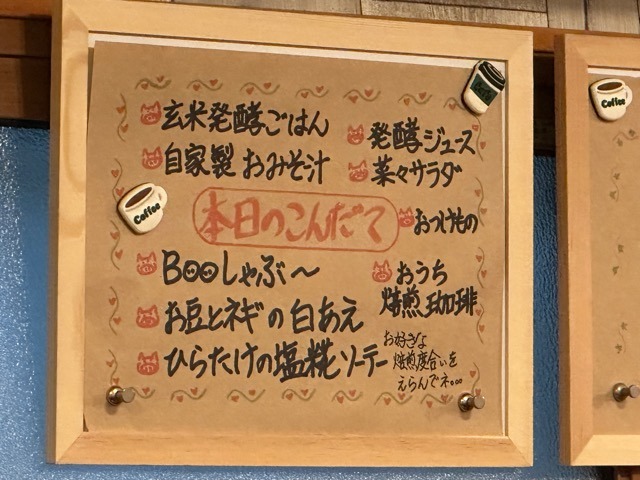 玄米発酵ごはん
自家製 おみそ汁
発酵ジュース
菜々サラダ
本日のこんだて
おつけもの
Booしゃぶ〜
お豆とネギの白あえ
ひらたけの塩糀ソーテー
おうち
焙煎珈琲
お好きな
焙煎度合いを
えらんでネ。。。
Coffee
Coffee